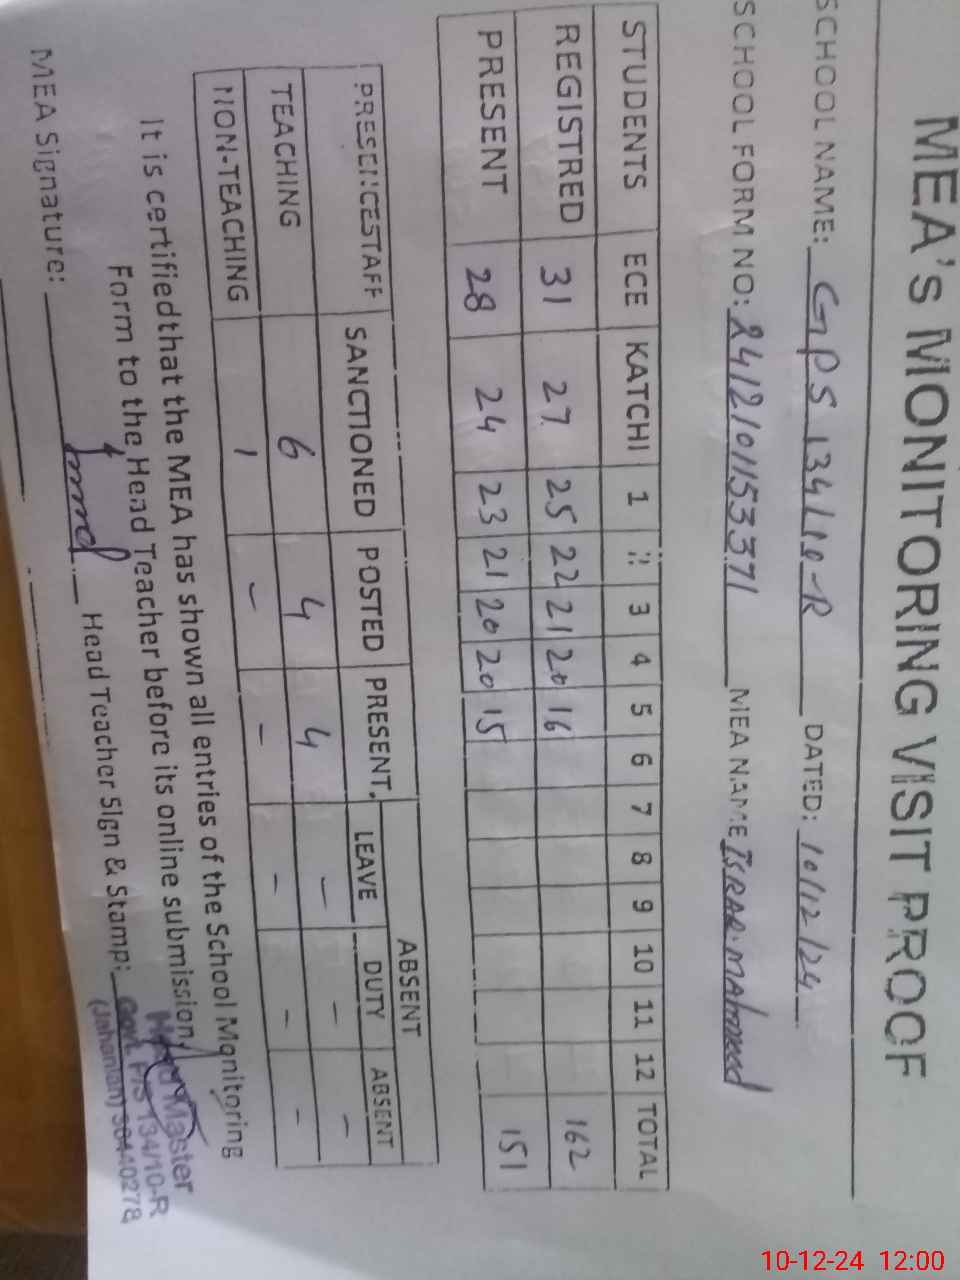 MEA's MONITORING VISIT PROOF
SCHOOL NAME: GPS 134/10-R DATED: 10/12/24
SCHOOL FORM NO: 2412101153371 MEA NAME ISRAR Mahmood
STUDENTS ECE KATCHI 1 2 3 4 5 6 7 8 9 10 11 12 TOTAL
REGISTRED 31 27 25 22 21 20 16 162
PRESENT 28 24 23 21 20 20 15 151
PRESENCESTAFF SANCTIONED POSTED PRESENT ABSENT
LEAVE DUTY ABSENT
TEACHING 6 4 4 - - -
NON-TEACHING 1 - - - - -
It is certified that the MEA has shown all entries of the School Monitoring
Form to the Head Teacher before its online submission.
MEA Signature: Head Teacher Sign & Stamp:
Head Master
Govt. P/S 134/10-R
(Jahanian) 36440278
10-12-24 12:00